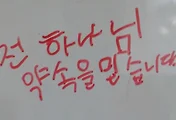 전 하나님
약속을 믿습니다